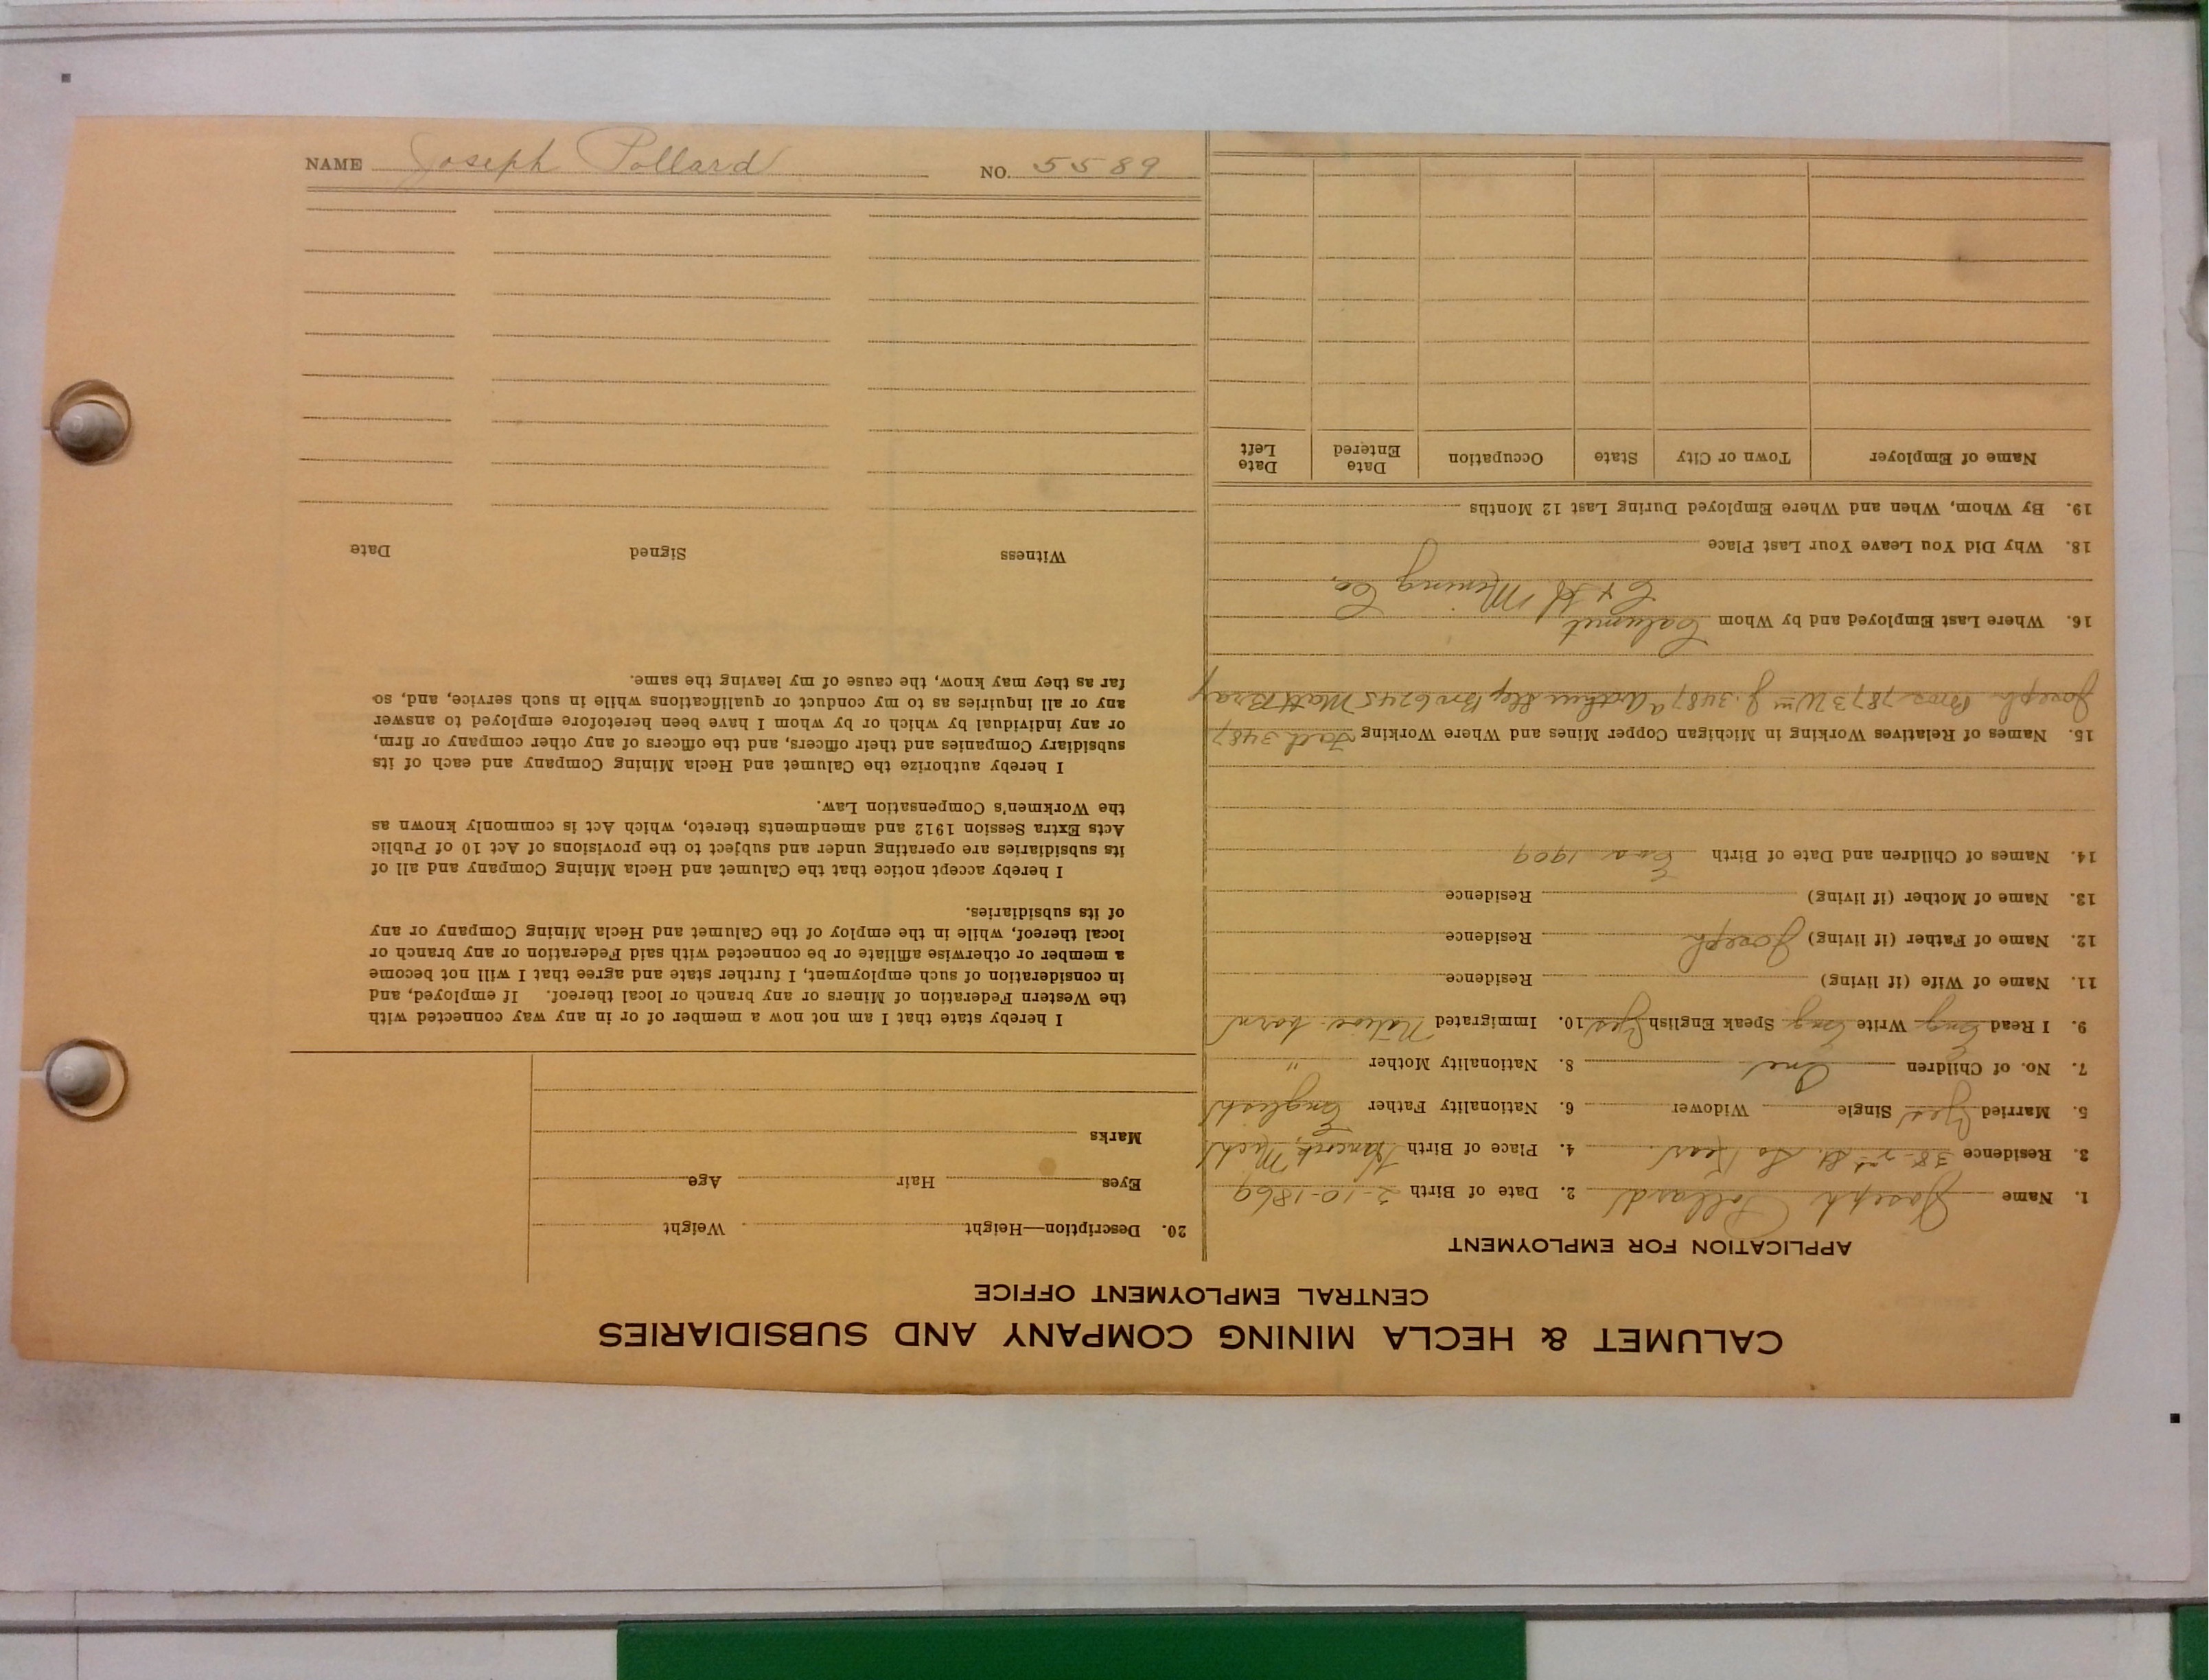 CALUMET & HECLA MINING COMPANY AND SUBSIDIARIES
CENTRAL EMPLOYMENT OFFICE
APPLICATION FOR EMPLOYMENT
1. Name Joseph Pollard 2. Date of Birth 2-10-1869
3. Residence 38-2nd St. So Kear. 4. Place of Birth Hancock, Mich
5. Married Yes Single Widower 6. Nationality Father English
7. No. of Children One 8. Nationality Mother "
9. I Read Eng Write Eng Speak English Yes 10. Immigrated Native born
11. Name of Wife (if living) Residence
12. Name of Father (if living) Joseph Residence
13. Name of Mother (if living) Residence
14. Names of Children and Date of Birth 1909
15. Names of Relatives Working in Michigan Copper Mines and Where Working 3487
Joseph Bros. 7873 Wm J. 3487a Arthur Step Bro 6745 Matt Bray
16. Where Last Employed and by Whom Calumet
C & H Mining Co.
18. Why Did You Leave Your Last Place
19. By Whom, When and Where Employed During Last 12 Months
Name of Employer Town or City State Occupation Date Entered Date Left
20. Description—Height Weight
Eyes Hair Age
Marks
I hereby state that I am not now a member of or in any way connected with
the Western Federation of Miners or any branch or local thereof. If employed, and
in consideration of such employment, I further state and agree that I will not become
a member or otherwise affiliate or be connected with said Federation or any branch or
local thereof, while in the employ of the Calumet and Hecla Mining Company or any
of its subsidiaries.
I hereby accept notice that the Calumet and Hecla Mining Company and all of
its subsidiaries are operating under and subject to the provisions of Act 10 of Public
Acts Extra Session 1912 and amendments thereto, which Act is commonly known as
the Workmen's Compensation Law.
I hereby authorize the Calumet and Hecla Mining Company and each of its
subsidiary Companies and their officers, and the officers of any other company or firm,
or any individual by which or by whom I have been heretofore employed to answer
any or all inquiries as to my conduct or qualifications while in such service, and, so
far as they may know, the cause of my leaving the same.
Witness Signed Date
NAME Joseph Pollard NO. 5589